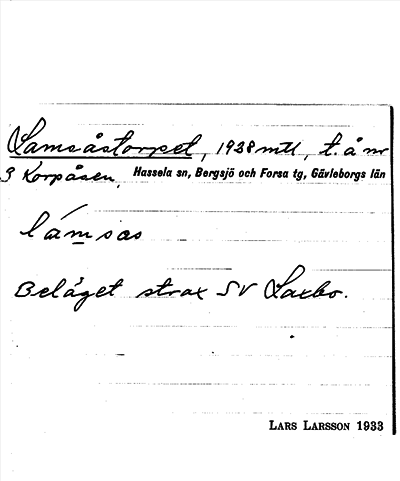 Lamsåstorpet, 1938 mtl, t. å nr
3 Korpåsen, Hassela sn, Bergsjö och Forsa tg, Gävleborgs län
lámsas
Beläget strax SV Laxbo.
LARS LARSSON 1933